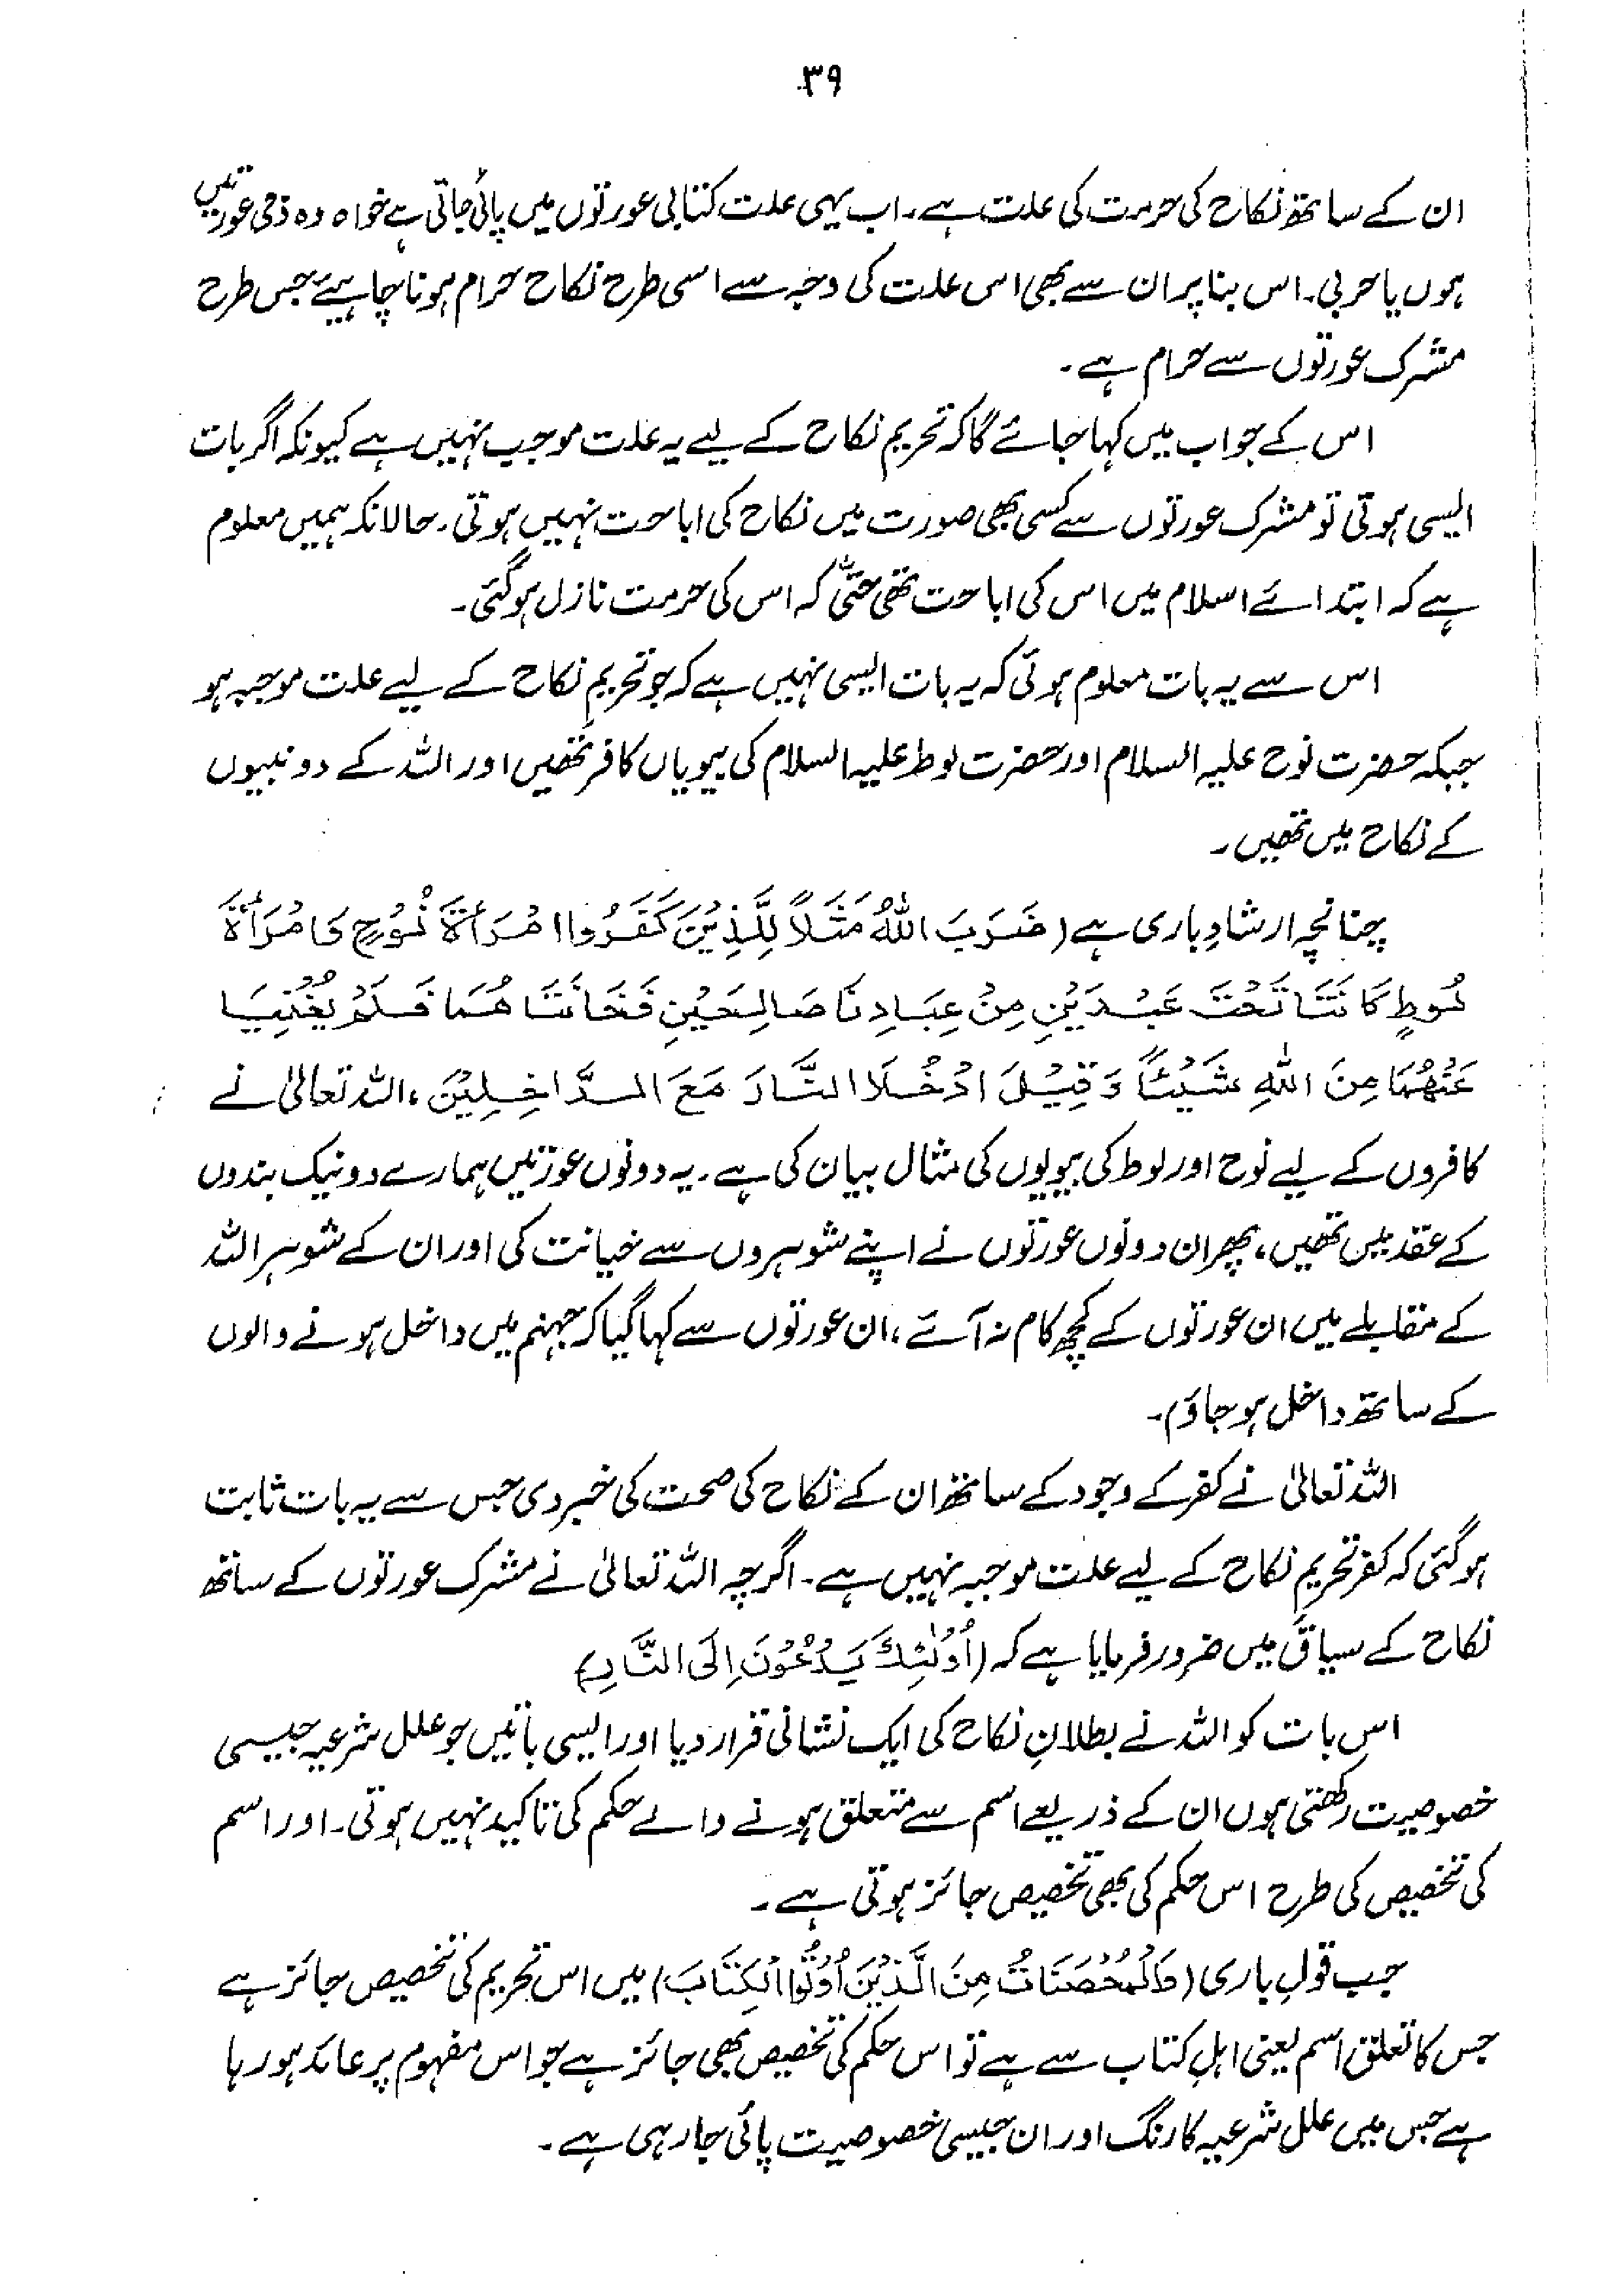 ۳۹
ان کے ساتھ نکاح کی حرمت کی علت ہے۔ اب یہی علت کتابی عورتوں میں پائی جاتی ہے خواہ وہ ذمی عورتیں
ہوں یا حربی۔ اس بنا پر ان سے بھی اس علت کی وجہ سے اسی طرح نکاح حرام ہونا چاہیئے جس طرح
مشرک عورتوں سے حرام ہے۔
اس کے جواب میں کہا جائے گا کہ تحریم نکاح کے لیے یہ علت موجب نہیں ہے کیونکہ اگر بات
ایسی ہوتی تو مشرک عورتوں سے کسی بھی صورت میں نکاح کی اباحت نہیں ہوتی۔ حالانکہ ہمیں معلوم
ہے کہ ابتدائے اسلام میں اس کی اباحت تھی حتّٰی کہ اس کی حرمت نازل ہوگئی۔
اس سے یہ بات معلوم ہوئی کہ یہ بات ایسی نہیں ہے کہ جو تحریمِ نکاح کے لیے علت موجبہ ہو
جبکہ حضرت نوح علیہ السلام اور حضرت لوط علیہ السلام کی بیویاں کافر تھیں اور اللہ کے دو نبیوں
کے نکاح میں تھیں۔
چنانچہ ارشادِ باری ہے (ضَرَبَ اللهُ مَثَلاً لِلَّذِيْنَ كَفَرُوا امْرَأَةَ نُوْحٍ وَامْرَأَةَ
لُوطٍ كَانَتَا تَحْتَ عَبْدَيْنِ مِنْ عِبَادِنَا صَالِحَيْنِ فَخَانَتَاهُمَا فَلَمْ يُغْنِيَا
عَنْهُمَا مِنَ اللهِ شَيْئًا وَقِيْلَ ادْخُلَا النَّارَ مَعَ الدَّاخِلِيْنَ، اللہ تعالیٰ نے
کافروں کے لیے نوح اور لوط کی بیویوں کی مثال بیان کی ہے۔ یہ دونوں عورتیں ہمارے دو نیک بندوں
کے عقد میں تھیں، پھر ان دونوں عورتوں نے اپنے شوہروں سے خیانت کی اور ان کے شوہر اللہ
کے مقابلے میں ان عورتوں کے کچھ کام نہ آئے، ان عورتوں سے کہا گیا کہ جہنم میں داخل ہونے والوں
کے ساتھ داخل ہو جاؤ)۔
اللہ تعالیٰ نے کفر کے وجود کے ساتھ ان کے نکاح کی صحت کی خبر دی جس سے یہ بات ثابت
ہوگئی کہ کفر تحریمِ نکاح کے لیے علت موجبہ نہیں ہے۔ اگرچہ اللہ تعالیٰ نے مشرک عورتوں کے ساتھ
نکاح کے سیاق میں ضرور فرمایا ہے کہ (أُولٰئِكَ يَدْعُوْنَ إِلَى النَّارِ)
اس بات کو اللہ نے بطلانِ نکاح کی ایک نشانی قرار دیا اور ایسی باتیں جو علل شرعیہ جیسی
خصوصیت رکھتی ہوں ان کے ذریعے اسم سے متعلق ہونے والے حکم کی تاکید نہیں ہوتی۔ اور اسم
کی تخصیص کی طرح اس حکم کی بھی تخصیص جائز ہوتی ہے۔
جب قولِ باری (وَالْمُحْصَنَاتُ مِنَ الَّذِيْنَ أُوْتُوا الْكِتَابَ) میں اس تحریم کی تخصیص جائز ہے
جس کا تعلق اسم یعنی اہلِ کتاب سے ہے تو اس حکم کی تخصیص بھی جائز ہے جو اس مفہوم پر عائد ہو رہا
ہے جس میں علل شرعیہ کا رنگ اور ان جیسی خصوصیت پائی جا رہی ہے۔